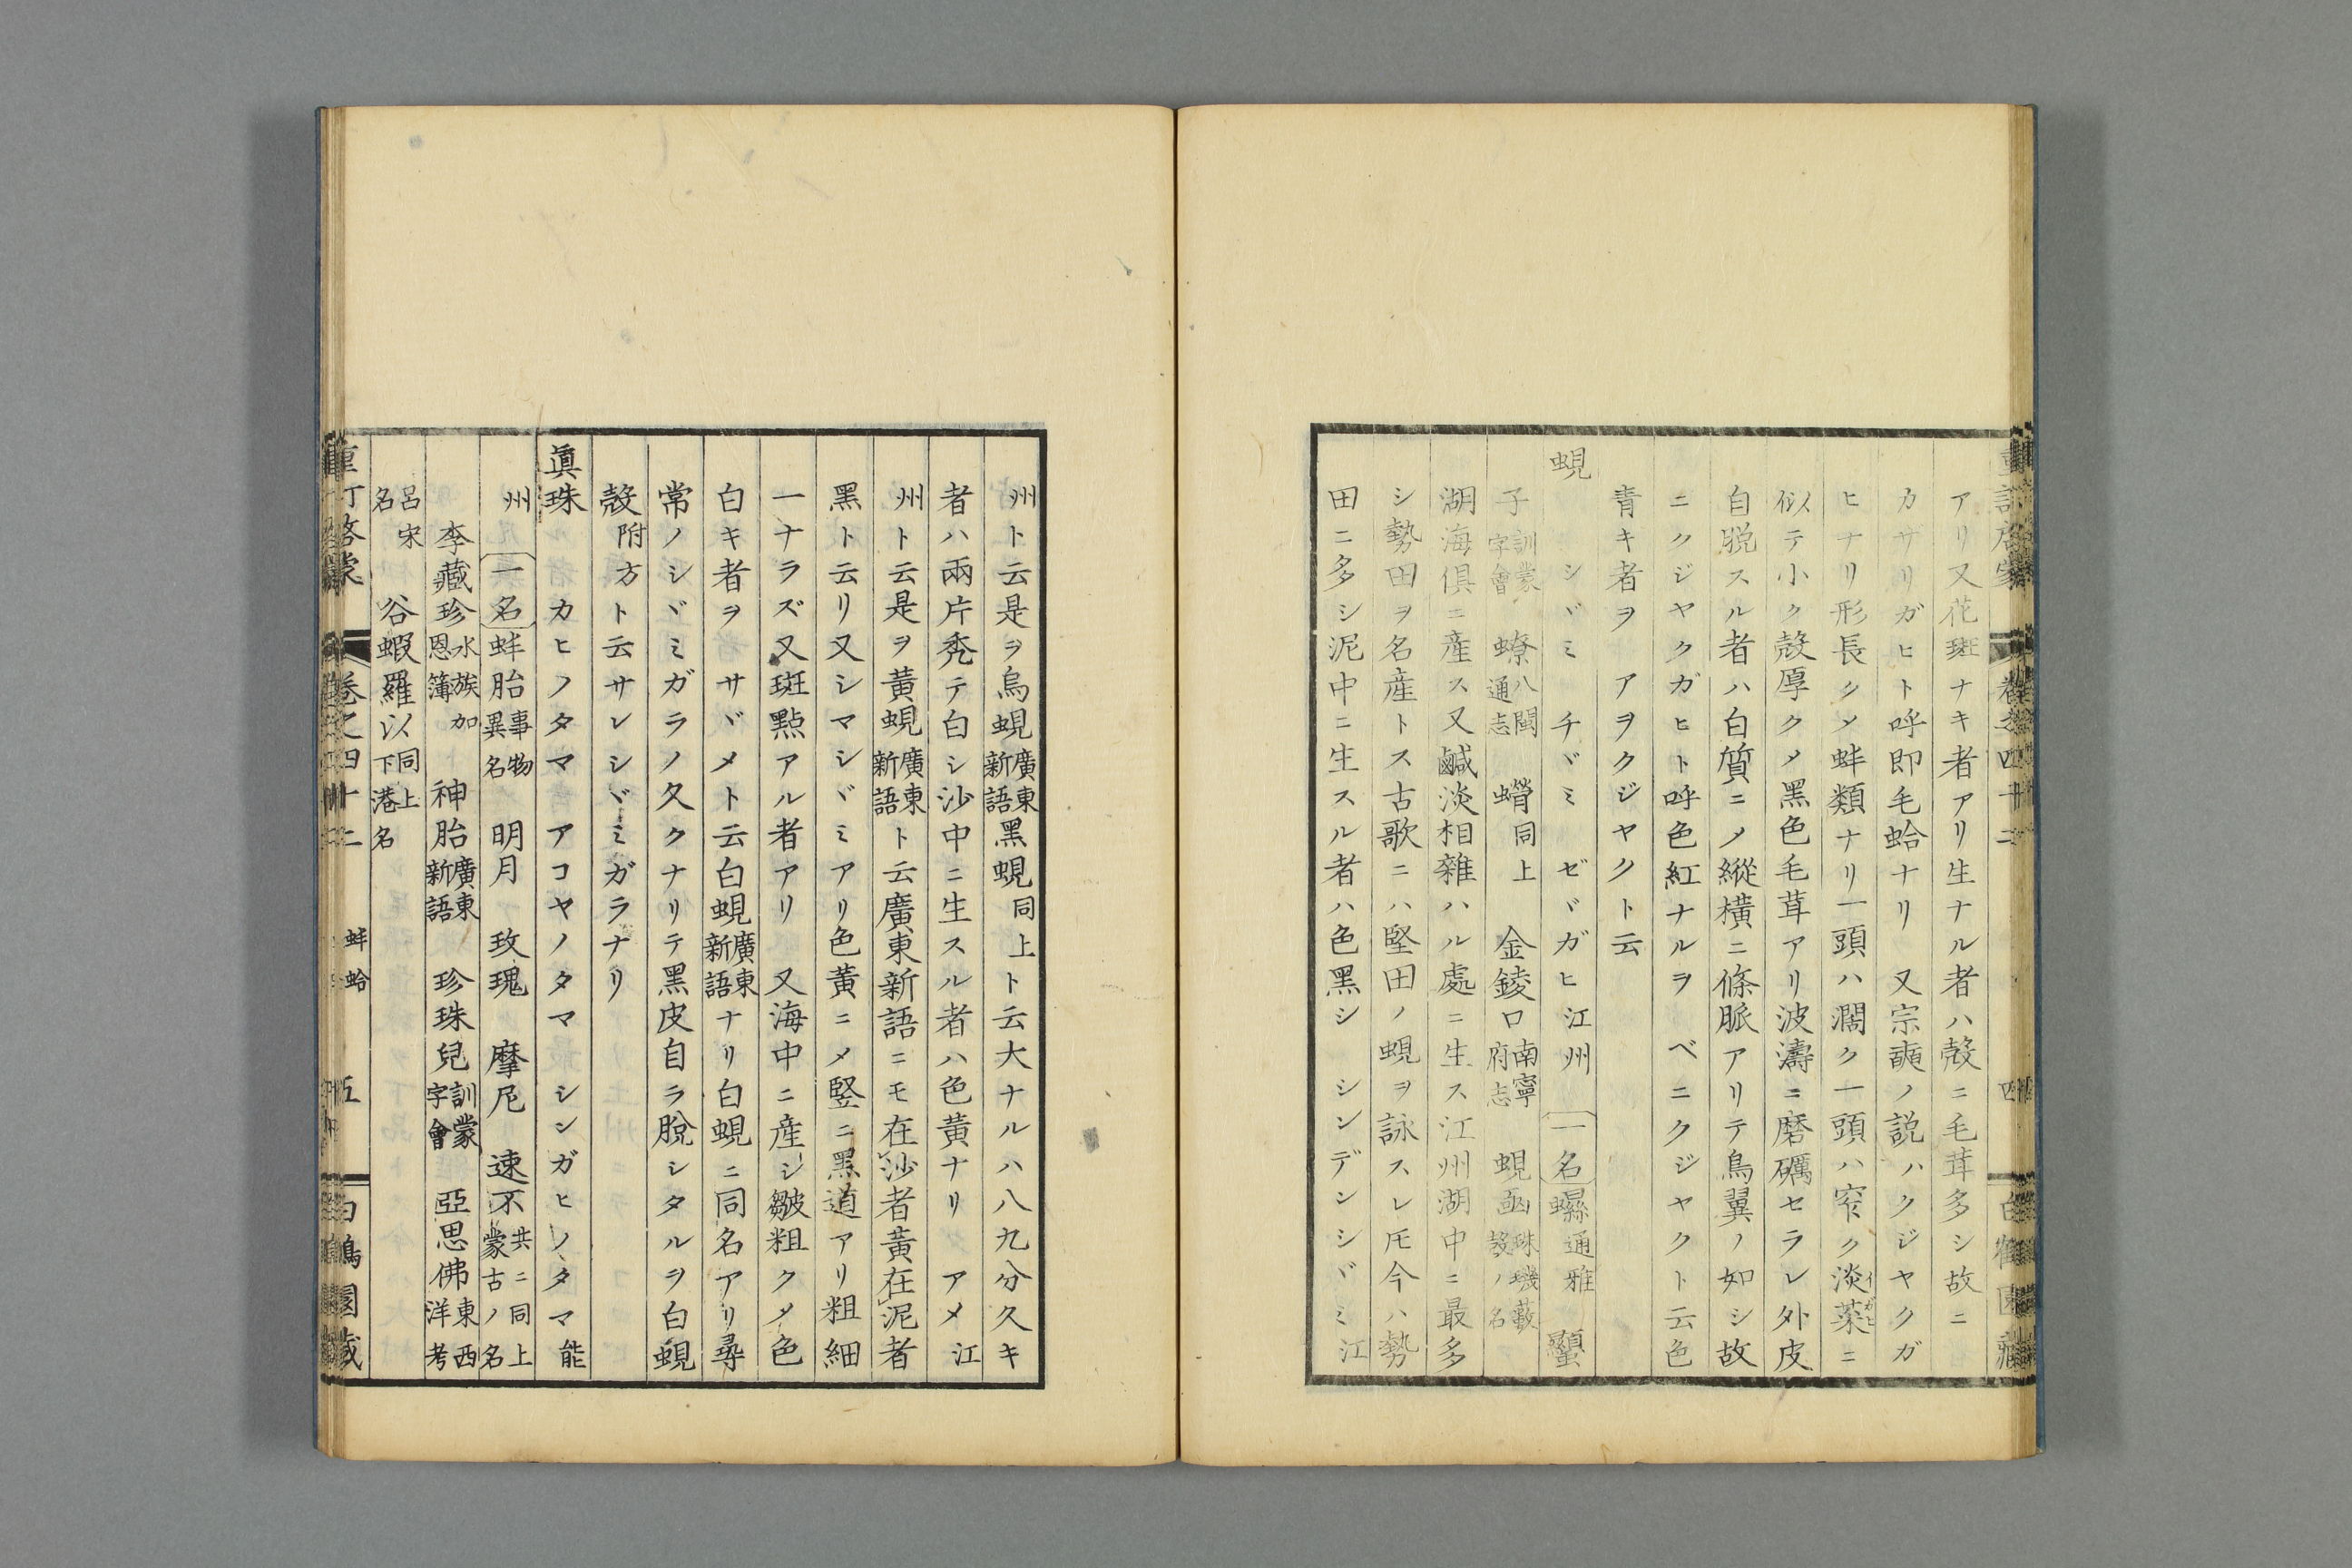 アリ又花斑ナキ者アリ生ナル者ハ殼ニ毛茸多シ故ニ
カサリガヒト呼即毛蛤ナリ 又宗奭ノ説ハクジヤクガ
ヒナリ形長クノ蚌類ナリ一頭ハ濶ク一頭ハ窄ク淡菜ニ
似テ小ク殼厚クノ黑色毛茸アリ波濤ニ磨礪セラレ外皮
自脱スル者ハ白質ニノ縱橫ニ條脈アリテ鳥翼ノ如シ故
ニクジヤクガヒト呼色紅ナルヲ ベニクジヤクト云色
青キ者ヲ アヲクジヤクト云
蜆 シヾミ チヾミ ゼヾガヒ江州 一名 螺通雅 
子訓蒙字會 蟟八閩通志 蟧同上 金錂口南寧府志 蜆凾珠璣藪殼ノ名
湖海俱ニ産ス又鹹淡相雜ハル處ニ生ス江州湖中ニ最多
シ勢田ヲ名産トス古歌ニハ堅田ノ蜆ヲ詠スレ𪜈今ハ勢
田ニ多シ泥中ニ生スル者ハ色黑シ シンデンシヾミ江
重訂啓蒙 卷之四十二 四
州ト云是ヲ烏蜆廣東新語黑蜆同上ト云大ナルハ八九分久キ
者ハ兩片禿テ白シ沙中ニ生スル者ハ色黃ナリ アメ江
州ト云是ヲ黃蜆廣東新語ト云廣東新語ニモ在沙者黃在泥者
黑ト云リ又シマシヾミアリ色黃ニノ竪ニ黑道アリ粗細
一ナラズ又斑點アル者アリ 又海中ニ産シ皺粗クノ色
白キ者ヲ サヾメト云白蜆廣東新語ナリ白蜆ニ同名アリ尋
常ノシヾミガラノ久クナリテ黑皮自ラ脫シタルヲ白蜆
殼附方ト云サレシヾミガラナリ
眞珠 カヒノタマ アコヤノタマ シンガヒノタマ能
州 一名 蚌胎事物異名 明月 玫瑰 摩尼 速不共ニ同上蒙古ノ名
李藏珍水族加恩簿 神胎廣東新語 珍珠兒訓蒙字會 亞思佛東西洋考
呂宋名 谷蝦羅同上以下港名
重訂啓蒙 卷之四十二 蚌蛤 五